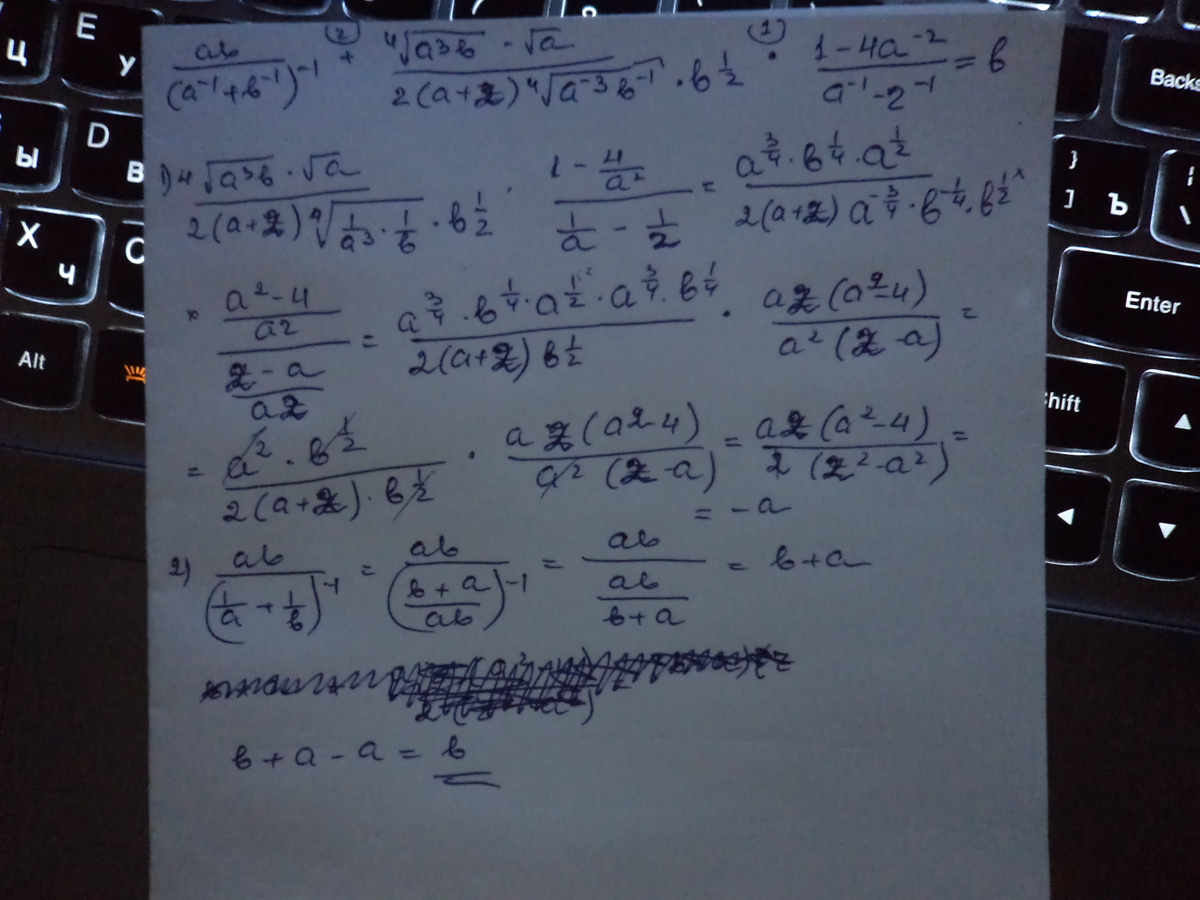 Ц E У Backs
Ы D В } ] Ъ | \
Х Ч C Enter
Alt Shift
② ①
ab/(a⁻¹+b⁻¹)⁻¹ + (⁴√(a³b) · √a)/(2(a+2) ⁴√(a⁻³b⁻¹) · b^(1/2)) · (1-4a⁻²)/(a⁻¹-2⁻¹) = b
1) (⁴√(a³b) · √a)/(2(a+2) ⁴√(1/a³ · 1/b) · b^(1/2)) · (1 - 4/a²)/(1/a - 1/2) = (a^(3/4) · b^(1/4) · a^(1/2))/(2(a+2) a^(-3/4) · b^(-1/4) · b^(1/2)) ×
× ((a²-4)/a2)/((2-a)/a2) = (a^(3/4) · b^(1/4) · a^(1/2) · a^(3/4) · b^(1/4))/(2(a+2) b^(1/2)) · (a2(a²-4))/(a²(2-a)) =
= (a² · b^(1/2))/(2(a+2) · b^(1/2)) · (a2(a²-4))/(a²(2-a)) = (a2(a²-4))/(2(2²-a²)) =
= -a
2) ab/(1/a + 1/b)⁻¹ = ab/((b+a)/ab)⁻¹ = ab/(ab/(b+a)) = b+a
b + a - a = b